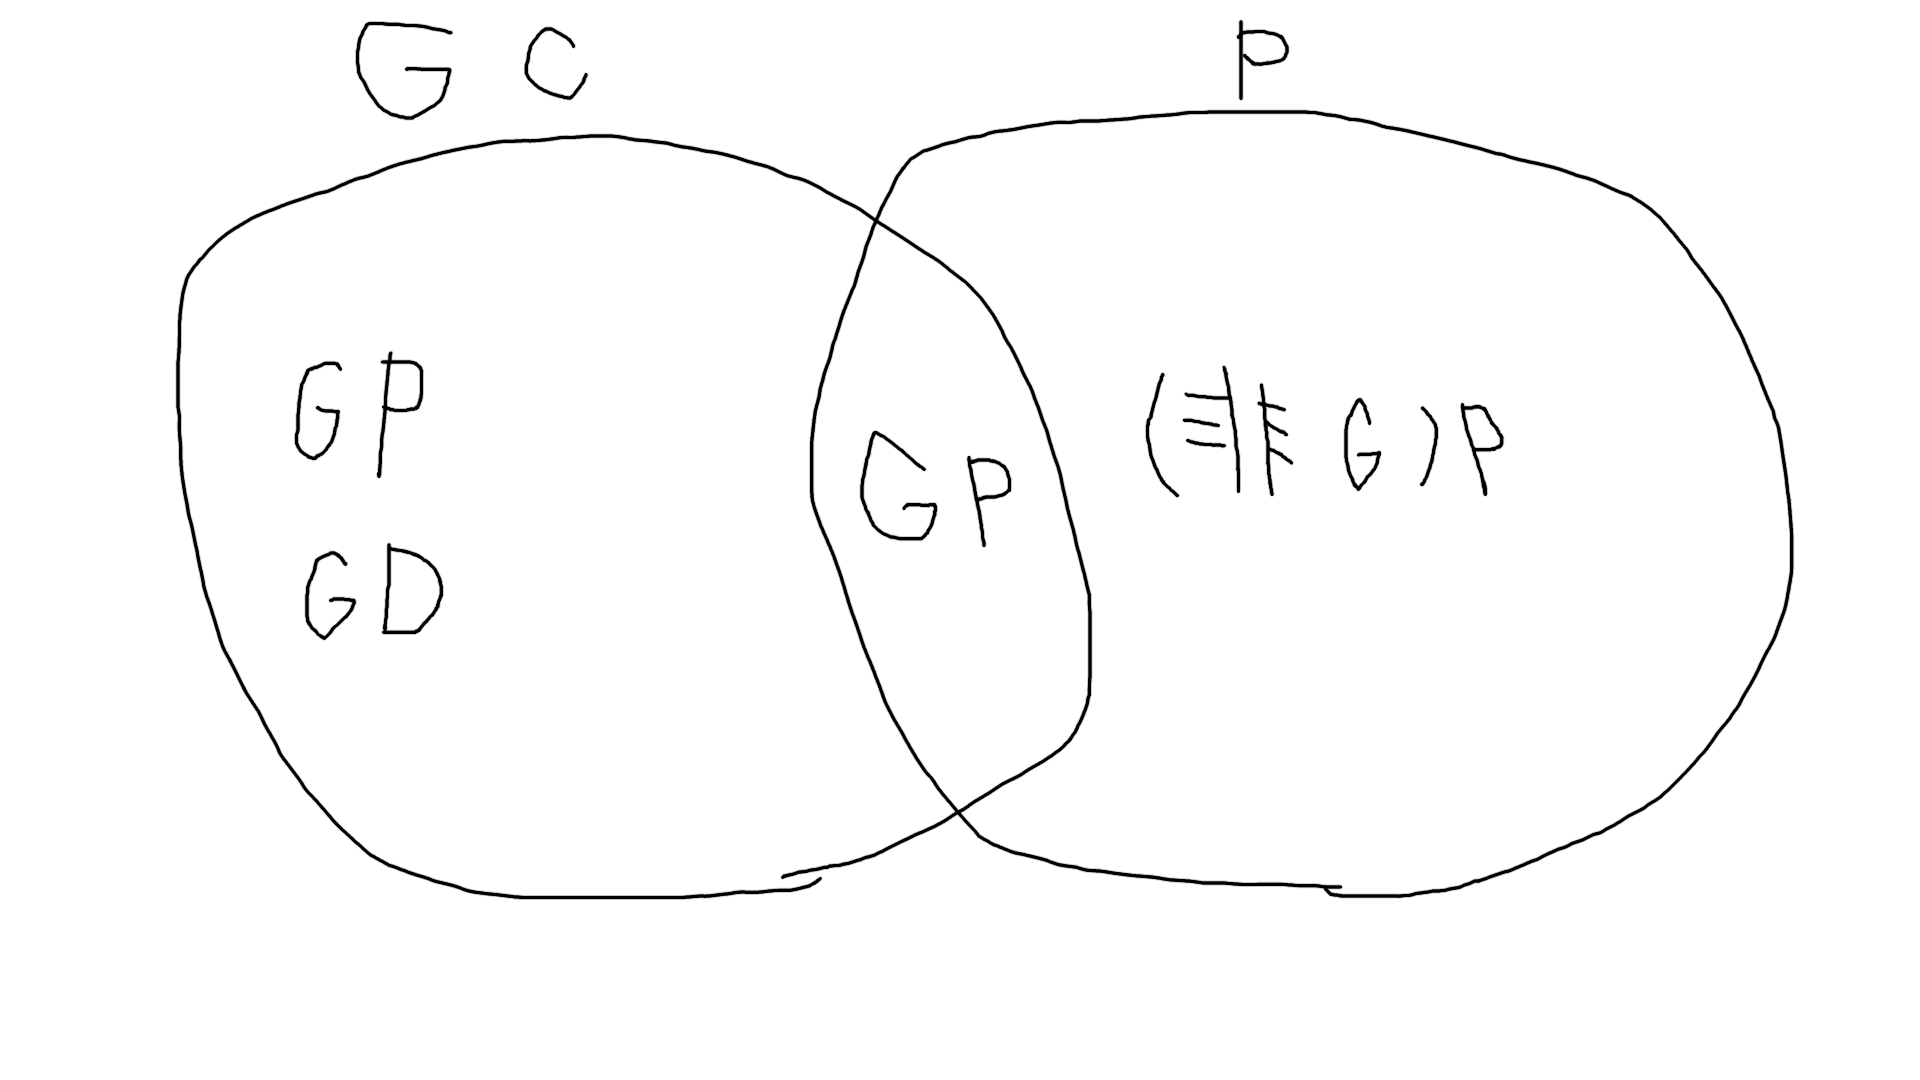 G C
P
GP
GD
GP
(非G)P